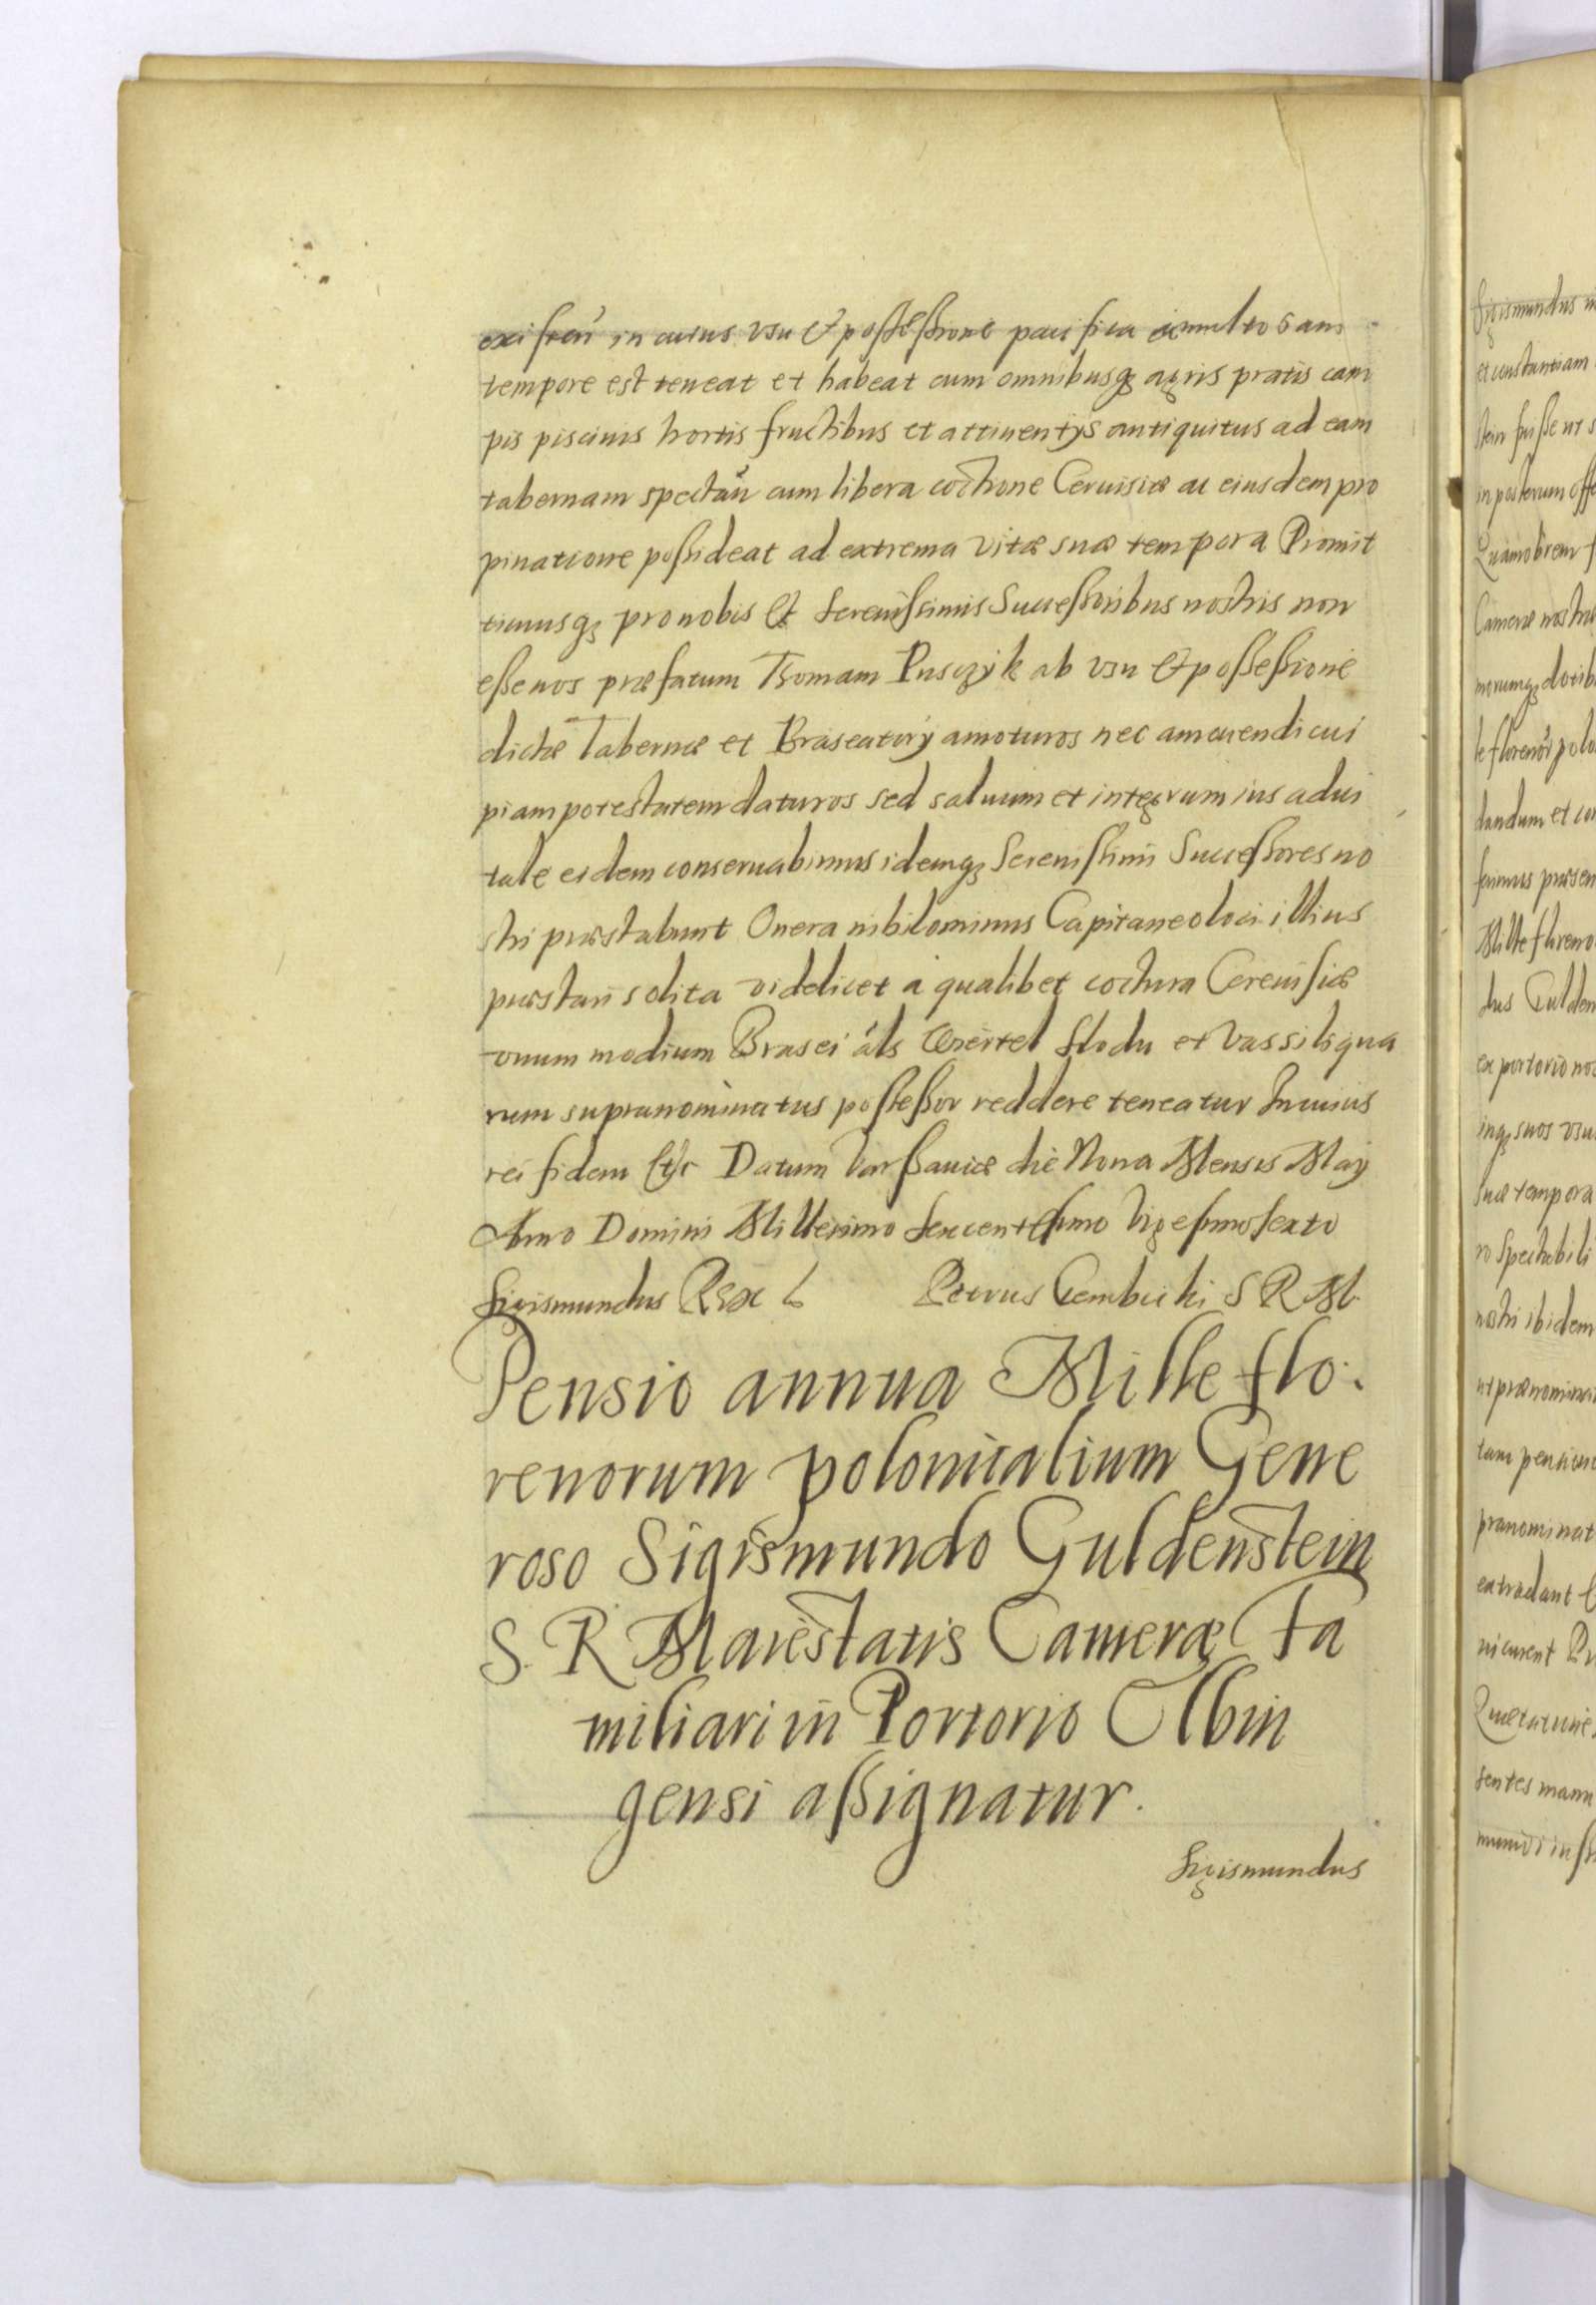 existen̄ in cuius vsu et possessione pacifica a multo iam
tempore est teneat et habeat cum omnibusq̨ agris pratis cam
pis piscinis hortis fructibus et attinentijs antiquitus ad eam
tabernam spectan̄ cum libera coctione Ceruisiæ ac eiusdem pro
pinatione possideat ad extrema vitæ suæ tempora Promit
timusq̨ pro nobis et Serenissimis Successoribus nostris non
esse nos præfatum Thomam Pusczyk ab vsu et possessione
dictæ Tabernæ et Braseatorij amoturos nec amouendi cui
piam potestatem daturos sed saluum et integrum ius adui
tale eidem conseruabimus idemq̨ Serenissimi Successores no
stri præstabunt Onera nihilominus Capitaneo loci illius
præstari solita videlicet à qualibet coctura Cereuisiæ
vnum modium Brasei als Cwiertel slodu et vas siliqua
rum supranominatus possessor reddere teneatur In cuius
rei fidem etc Datum Varssauiæ die Nona Mensis Maij
Anno Domini Millesimo Sexcentesimo Vigesimo sexto
Sigismundus Rex L Petrus Gembicki S R M
Pensio annua Mille flo.
renorum polonicalium Gene
roso Sigismundo Guldenstein
S. R Maiestatis Cameræ Fa
miliari in Portorio Elbin
gensi assignatur.
Sigismundus
Sigismundus
et constantiam
stein fuisse ut s
in posterum offe
Quamobrem
Cameræ nostræ
morumq̨ dotib
le florenor polo
dandum et co
famus præsen
Mille floreno
dus Gulden
ex portorio nos
inq̨ suos vsu
suæ tempora
ro Spectabili
nostri ibidem
ut prænomina
tam pension
prænominat
extradant
Quietatione
sentes manu